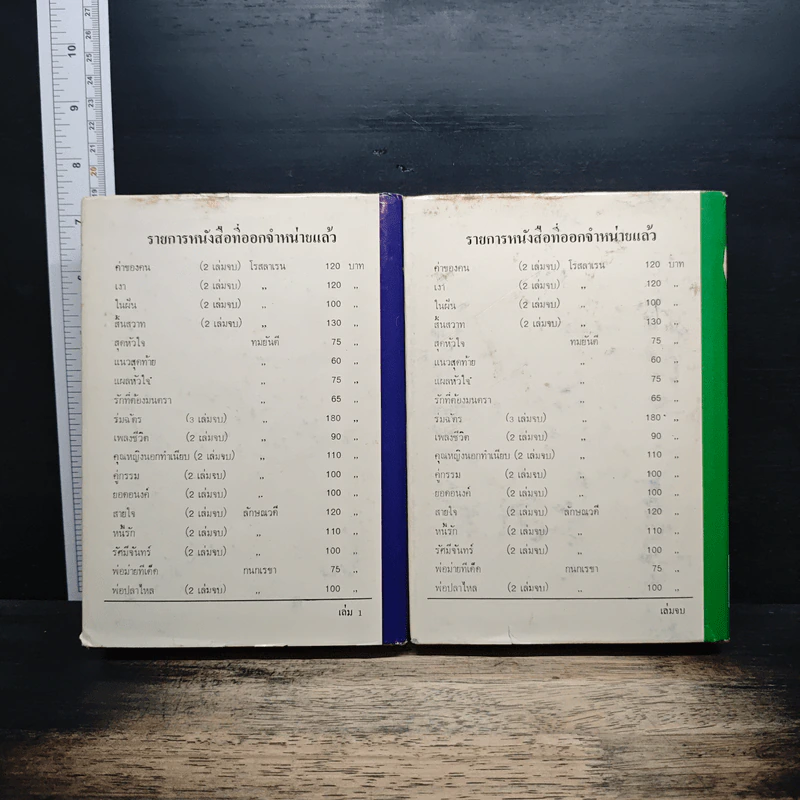 รายการหนังสือที่ออกจำหน่ายแล้ว
ค่าของคน (2 เล่มจบ) โรสลาเรน 120 บาท
เงา (2 เล่มจบ) ,, 120 ,,
ในฝัน (2 เล่มจบ) ,, 100 ,,
สิ้นสวาท (2 เล่มจบ) ,, 130 ,,
สุดหัวใจ ทมยันตี 75 ,,
แนวสุดท้าย ,, 60 ,,
แผลหัวใจ ,, 75 ,,
รักที่ต้องมนตรา ,, 65 ,,
ร่มฉัตร (3 เล่มจบ) ,, 180 ,,
เพลงชีวิต (2 เล่มจบ) ,, 90 ,,
คุณหญิงนอกทำเนียบ (2 เล่มจบ) ,, 110 ,,
คู่กรรม (2 เล่มจบ) ,, 100 ,,
ยอดอนงค์ (2 เล่มจบ) ,, 100 ,,
สายใจ (2 เล่มจบ) ลักษณวดี 120 ,,
หนี้รัก (2 เล่มจบ) ,, 110 ,,
รัศมีจันทร์ (2 เล่มจบ) ,, 100 ,,
พ่อม่ายทีเด็ด กนกเรขา 75 ,,
พ่อปลาไหล (2 เล่มจบ) ,, 100 ,,
เล่ม 1
รายการหนังสือที่ออกจำหน่ายแล้ว
ค่าของคน (2 เล่มจบ) โรสลาเรน 120 บาท
เงา (2 เล่มจบ) ,, 120 ,,
ในฝัน (2 เล่มจบ) ,, 100 ,,
สิ้นสวาท (2 เล่มจบ) ,, 130 ,,
สุดหัวใจ ทมยันตี 75 ,,
แนวสุดท้าย ,, 60 ,,
แผลหัวใจ ,, 75 ,,
รักที่ต้องมนตรา ,, 65 ,,
ร่มฉัตร (3 เล่มจบ) ,, 180 ,,
เพลงชีวิต (2 เล่มจบ) ,, 90 ,,
คุณหญิงนอกทำเนียบ (2 เล่มจบ) ,, 110 ,,
คู่กรรม (2 เล่มจบ) ,, 100 ,,
ยอดอนงค์ (2 เล่มจบ) ,, 100 ,,
สายใจ (2 เล่มจบ) ลักษณวดี 120 ,,
หนี้รัก (2 เล่มจบ) ,, 110 ,,
รัศมีจันทร์ (2 เล่มจบ) ,, 100 ,,
พ่อม่ายทีเด็ด กนกเรขา 75 ,,
พ่อปลาไหล (2 เล่มจบ) ,, 100 ,,
เล่มจบ